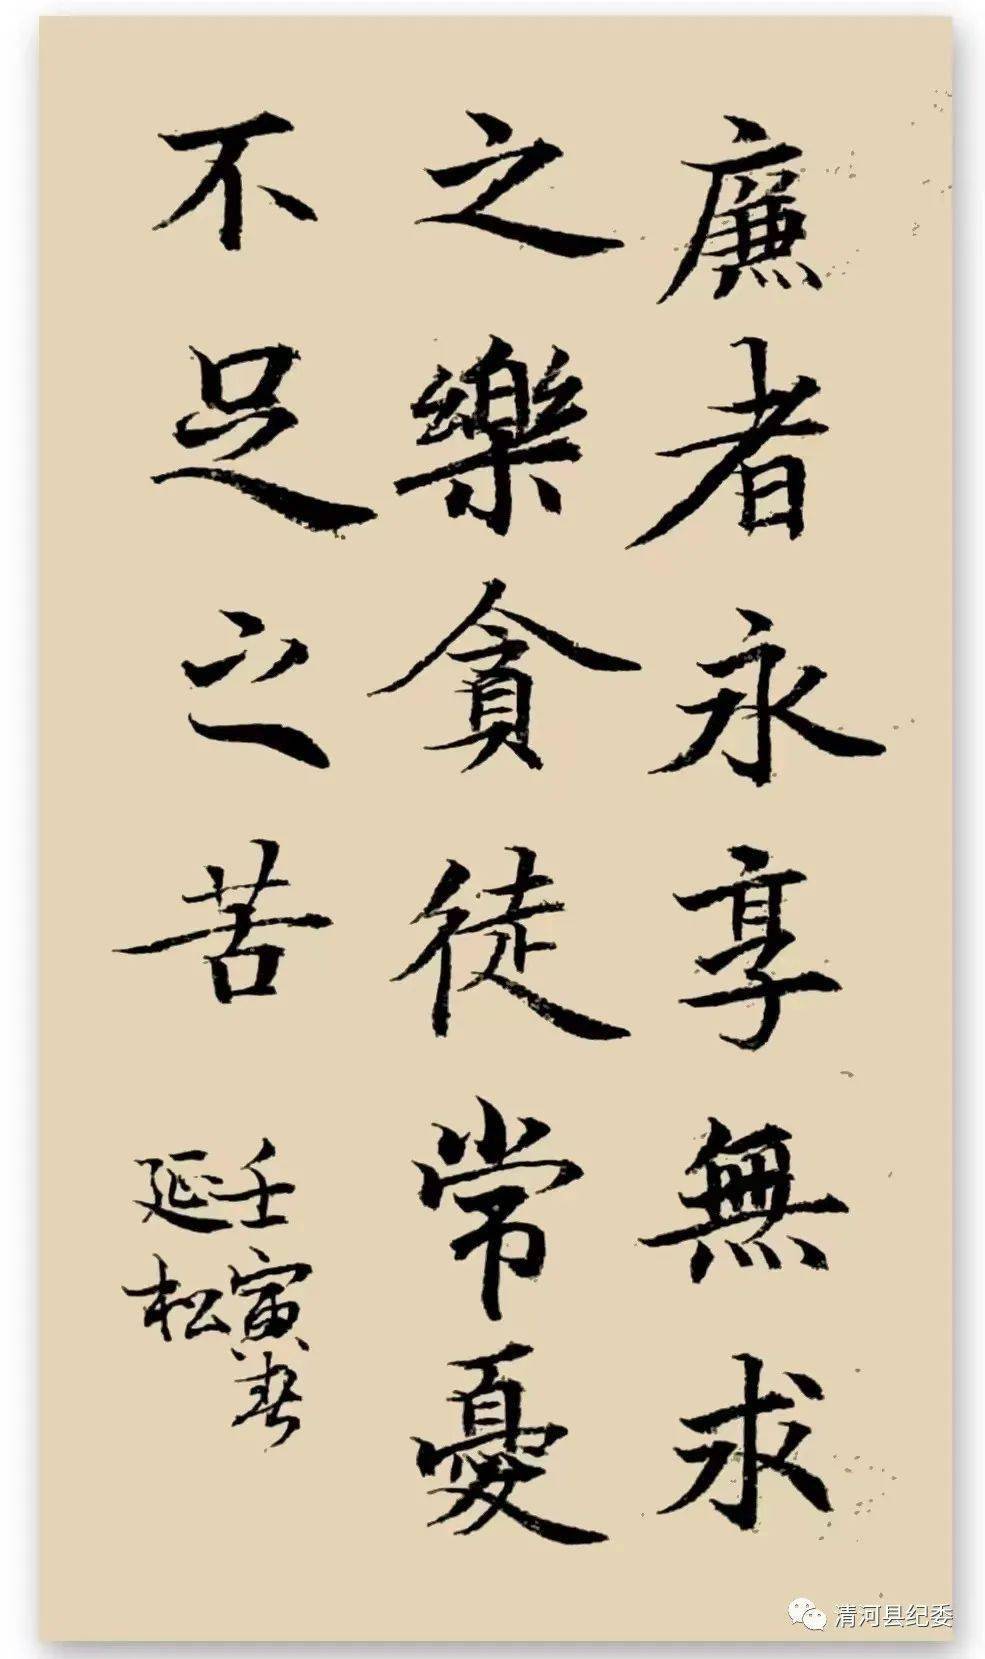 廉者永享無求
之樂貪徒常憂
不足之苦
壬寅春
延松
清河县纪委